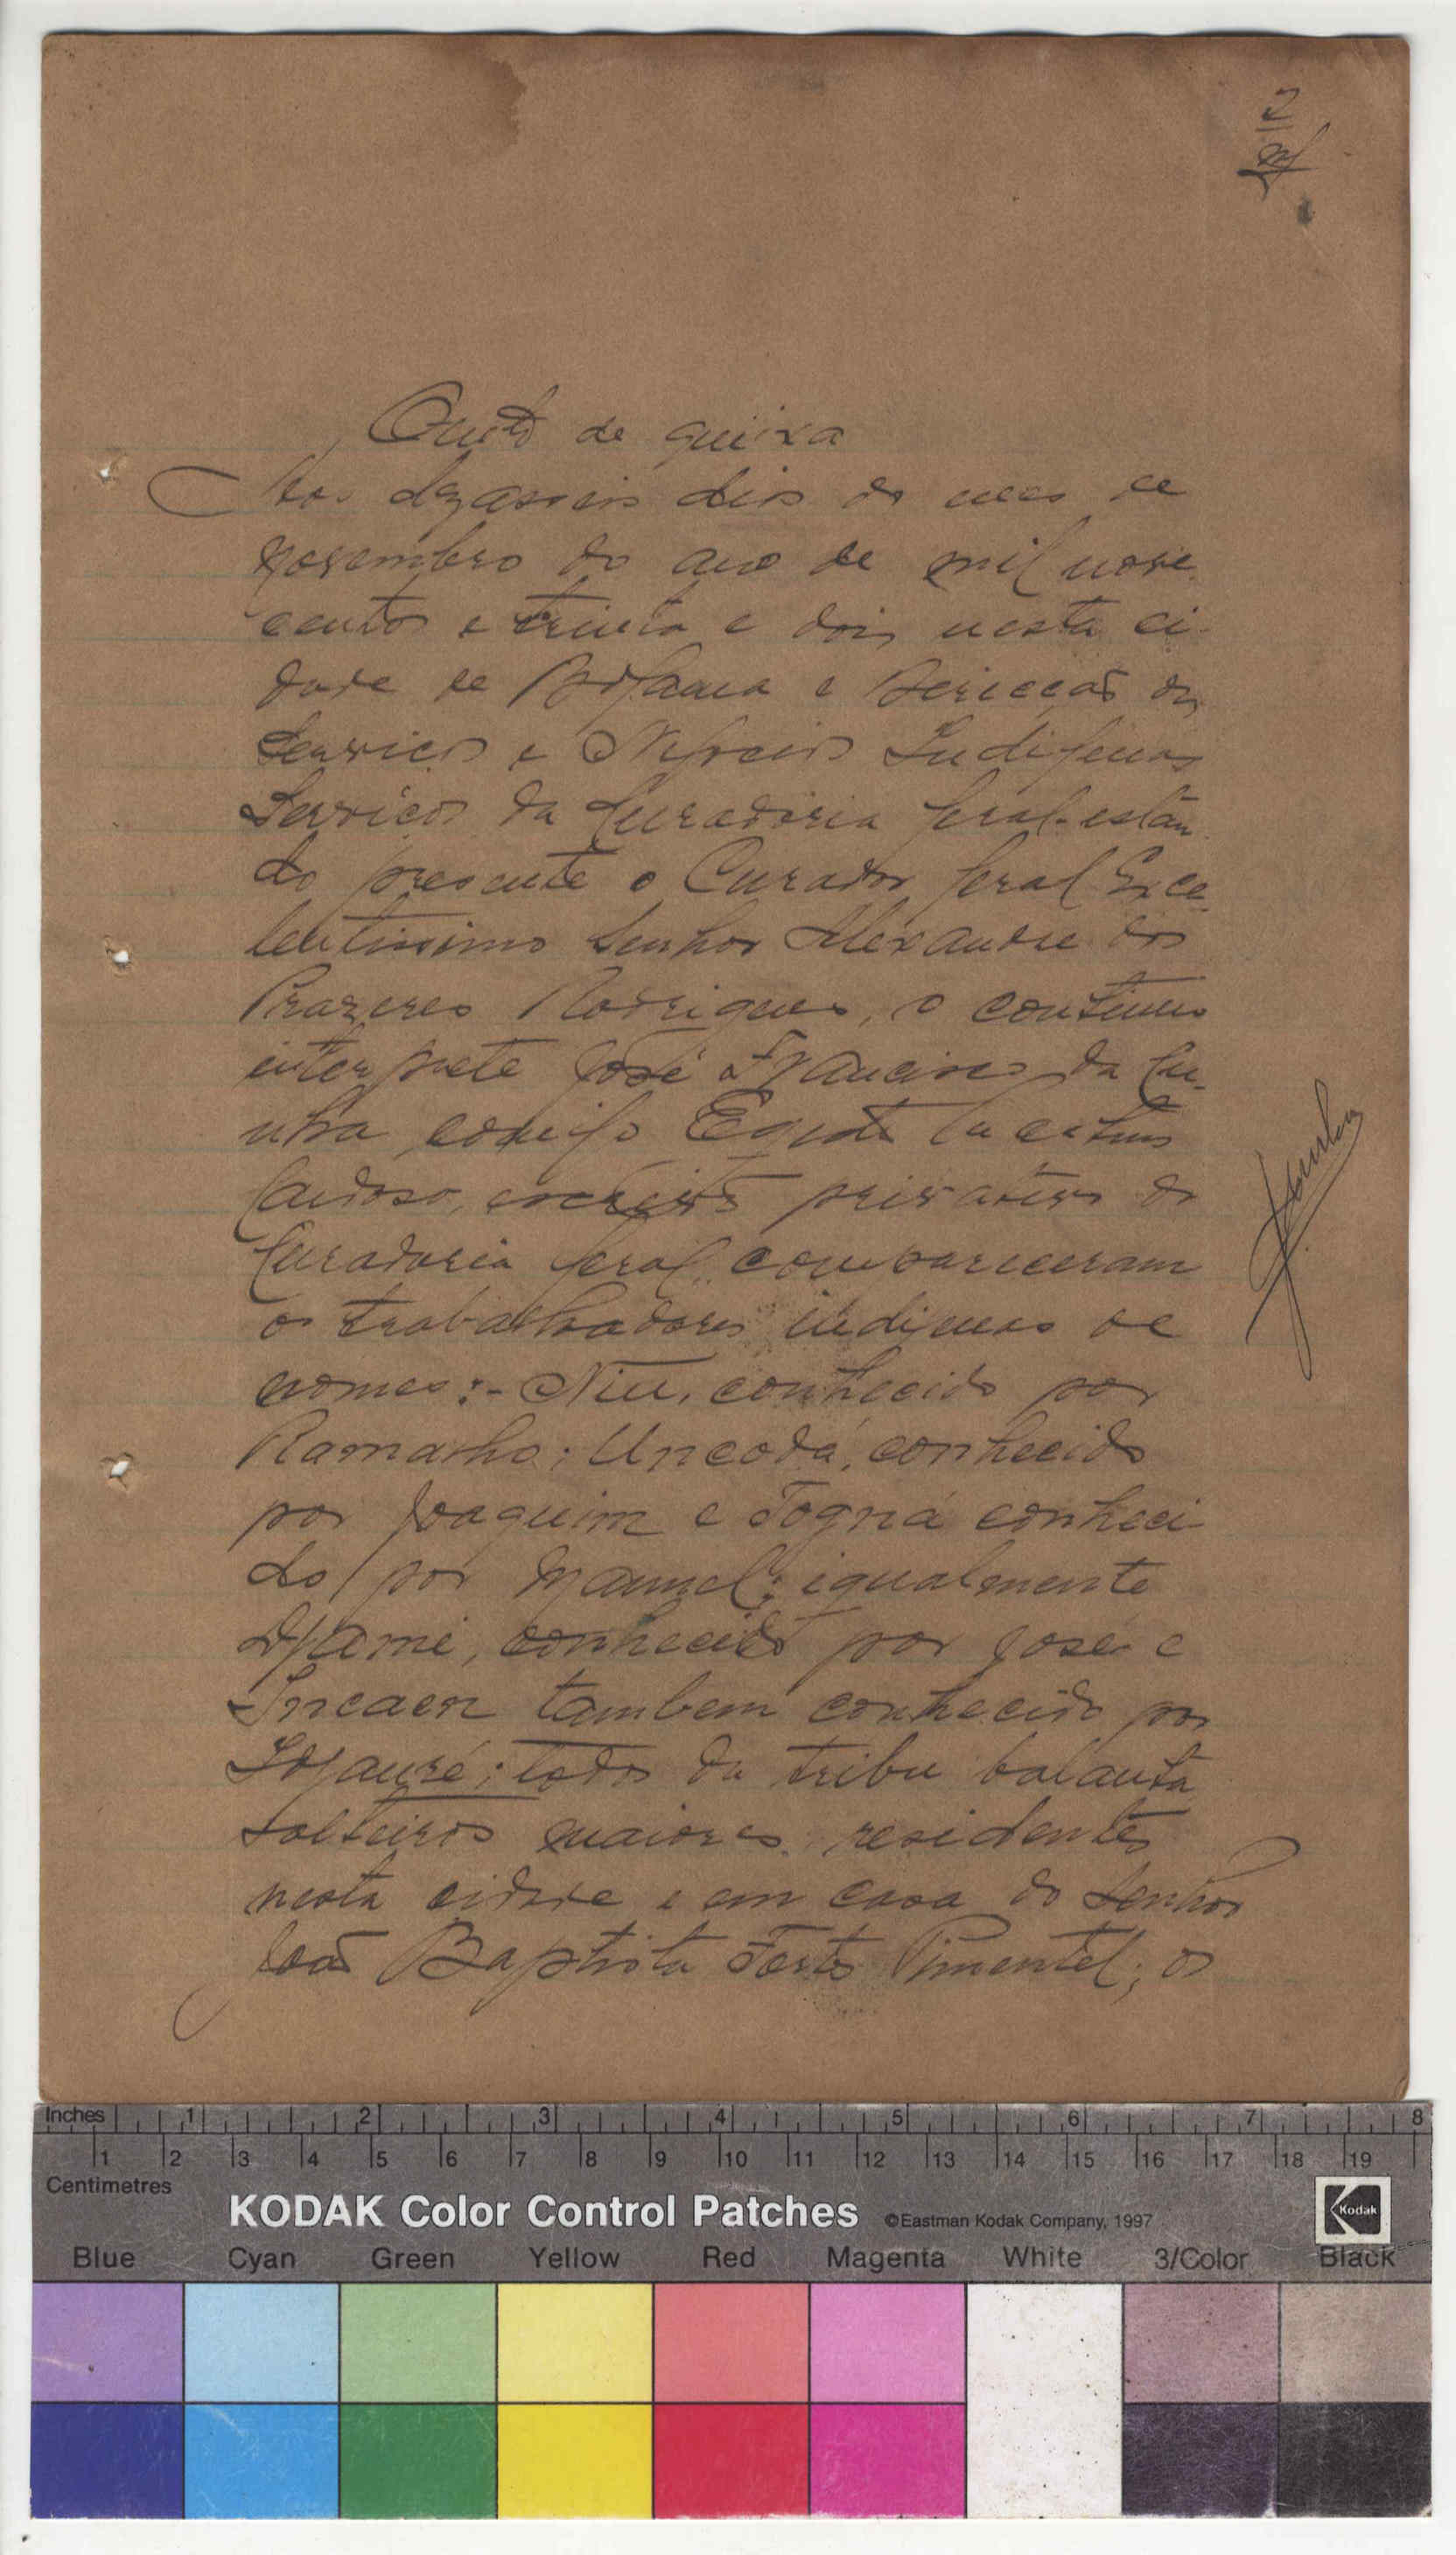 2
Auto de queixa
Aos dezasseis dias do mes de
Novembro do ano de mil nove
centos e trinta e dois nesta ci-
dade de Bolama e Direcção dos
Serviços e Negocios Indigenas
Serviços da Curadoria Geral estan
do presente o Curador Geral Exce
lentissimo Senhor Alexandre dos
Prazeres Rodrigues, o continuo
interprete José Francisco da Cu-
nha, comigo
Cardoso, privativo da
Curadoria Geral, compareceram
os trabalhadores indigenas de
nomes:- Niu, conhecido por
Ramalho; Uncodá, conhecido
por Joaquim e Togná conheci
do por Manuel; igualmente
Djamé, conhecido por José e
Incaen tambem conhecido por
Idjauré; todos da tribu balanta
solteiros maiores, residentes
nesta cidade e em casa do Senhor
João Baptista Fortes Pimentel; os
Cunha
Inches 1 2 3 4 5 6 7 8
1 2 3 4 5 6 7 8 9 10 11 12 13 14 15 16 17 18 19
Centimetres
KODAK Color Control Patches ©Eastman Kodak Company, 1997 Kodak
Blue Cyan Green Yellow Red Magenta White 3/Color Black